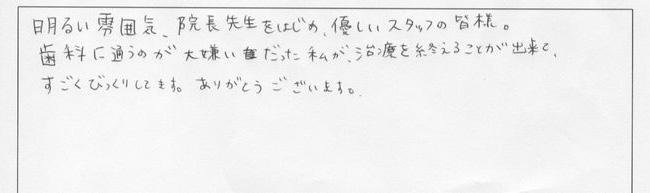 明るい雰囲気、院長先生をはじめ、優しいスタッフの皆様。
歯科に通うのが大嫌いだった私が、治療を終えることが出来て、
すごくびっくりしてます。ありがとうございます。